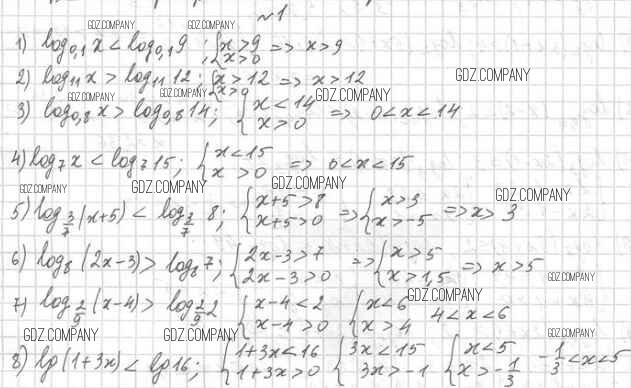 №1
GDZ.COMPANY GDZ.COMPANY
1) log₀,₁ x < log₀,₁ 9 ; {x > 9 x > 0 => x > 9
2) log₁₁ x > log₁₁ 12 ; {x > 12 x > 0 => x > 12 GDZ.COMPANY
GDZ.COMPANY GDZ.COMPANY GDZ.COMPANY
3) log₀,₈ x > log₀,₈ 14 ; {x < 14 x > 0 => 0 < x < 14
4) log₇ x < log₇ 15 ; {x < 15 x > 0 => 0 < x < 15
GDZ.COMPANY GDZ.COMPANY GDZ.COMPANY GDZ.COMPANY
5) log_3/7 (x+5) < log_3/7 8 ; {x+5 > 8 x+5 > 0 => {x > 3 x > -5 => x > 3
6) log₈ (2x-3) > log₈ 7 ; {2x-3 > 7 2x-3 > 0 => {x > 5 x > 1,5 => x > 5 GDZ.COMPANY
GDZ.COMPANY
7) log_2/9 (x-4) > log_2/9 2 {x-4 < 2 x-4 > 0 {x < 6 x > 4 4 < x < 6
GDZ.COMPANY GDZ.COMPANY GDZ.COMPANY GDZ.COMPANY
8) lg (1+3x) < lg 16 ; {1+3x < 16 1+3x > 0 {3x < 15 3x > -1 {x < 5 x > -1/3 -1/3 < x < 5